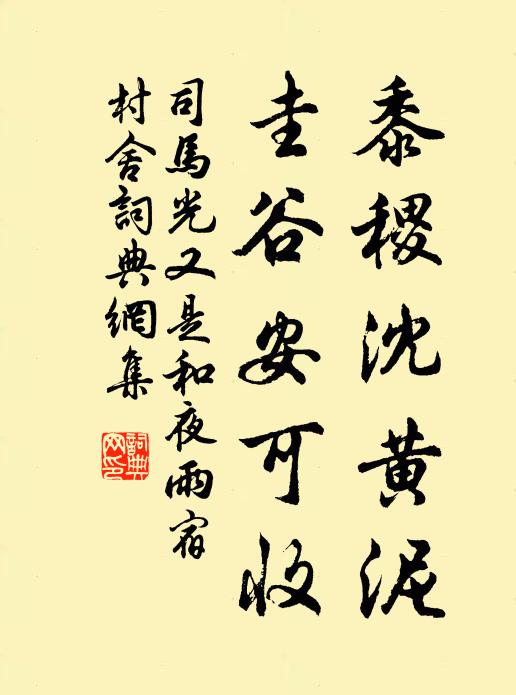 黍稷沈黄泥
圭谷安可收
司馬光又是和夜雨宿
村舍詞典網集
詞典網印